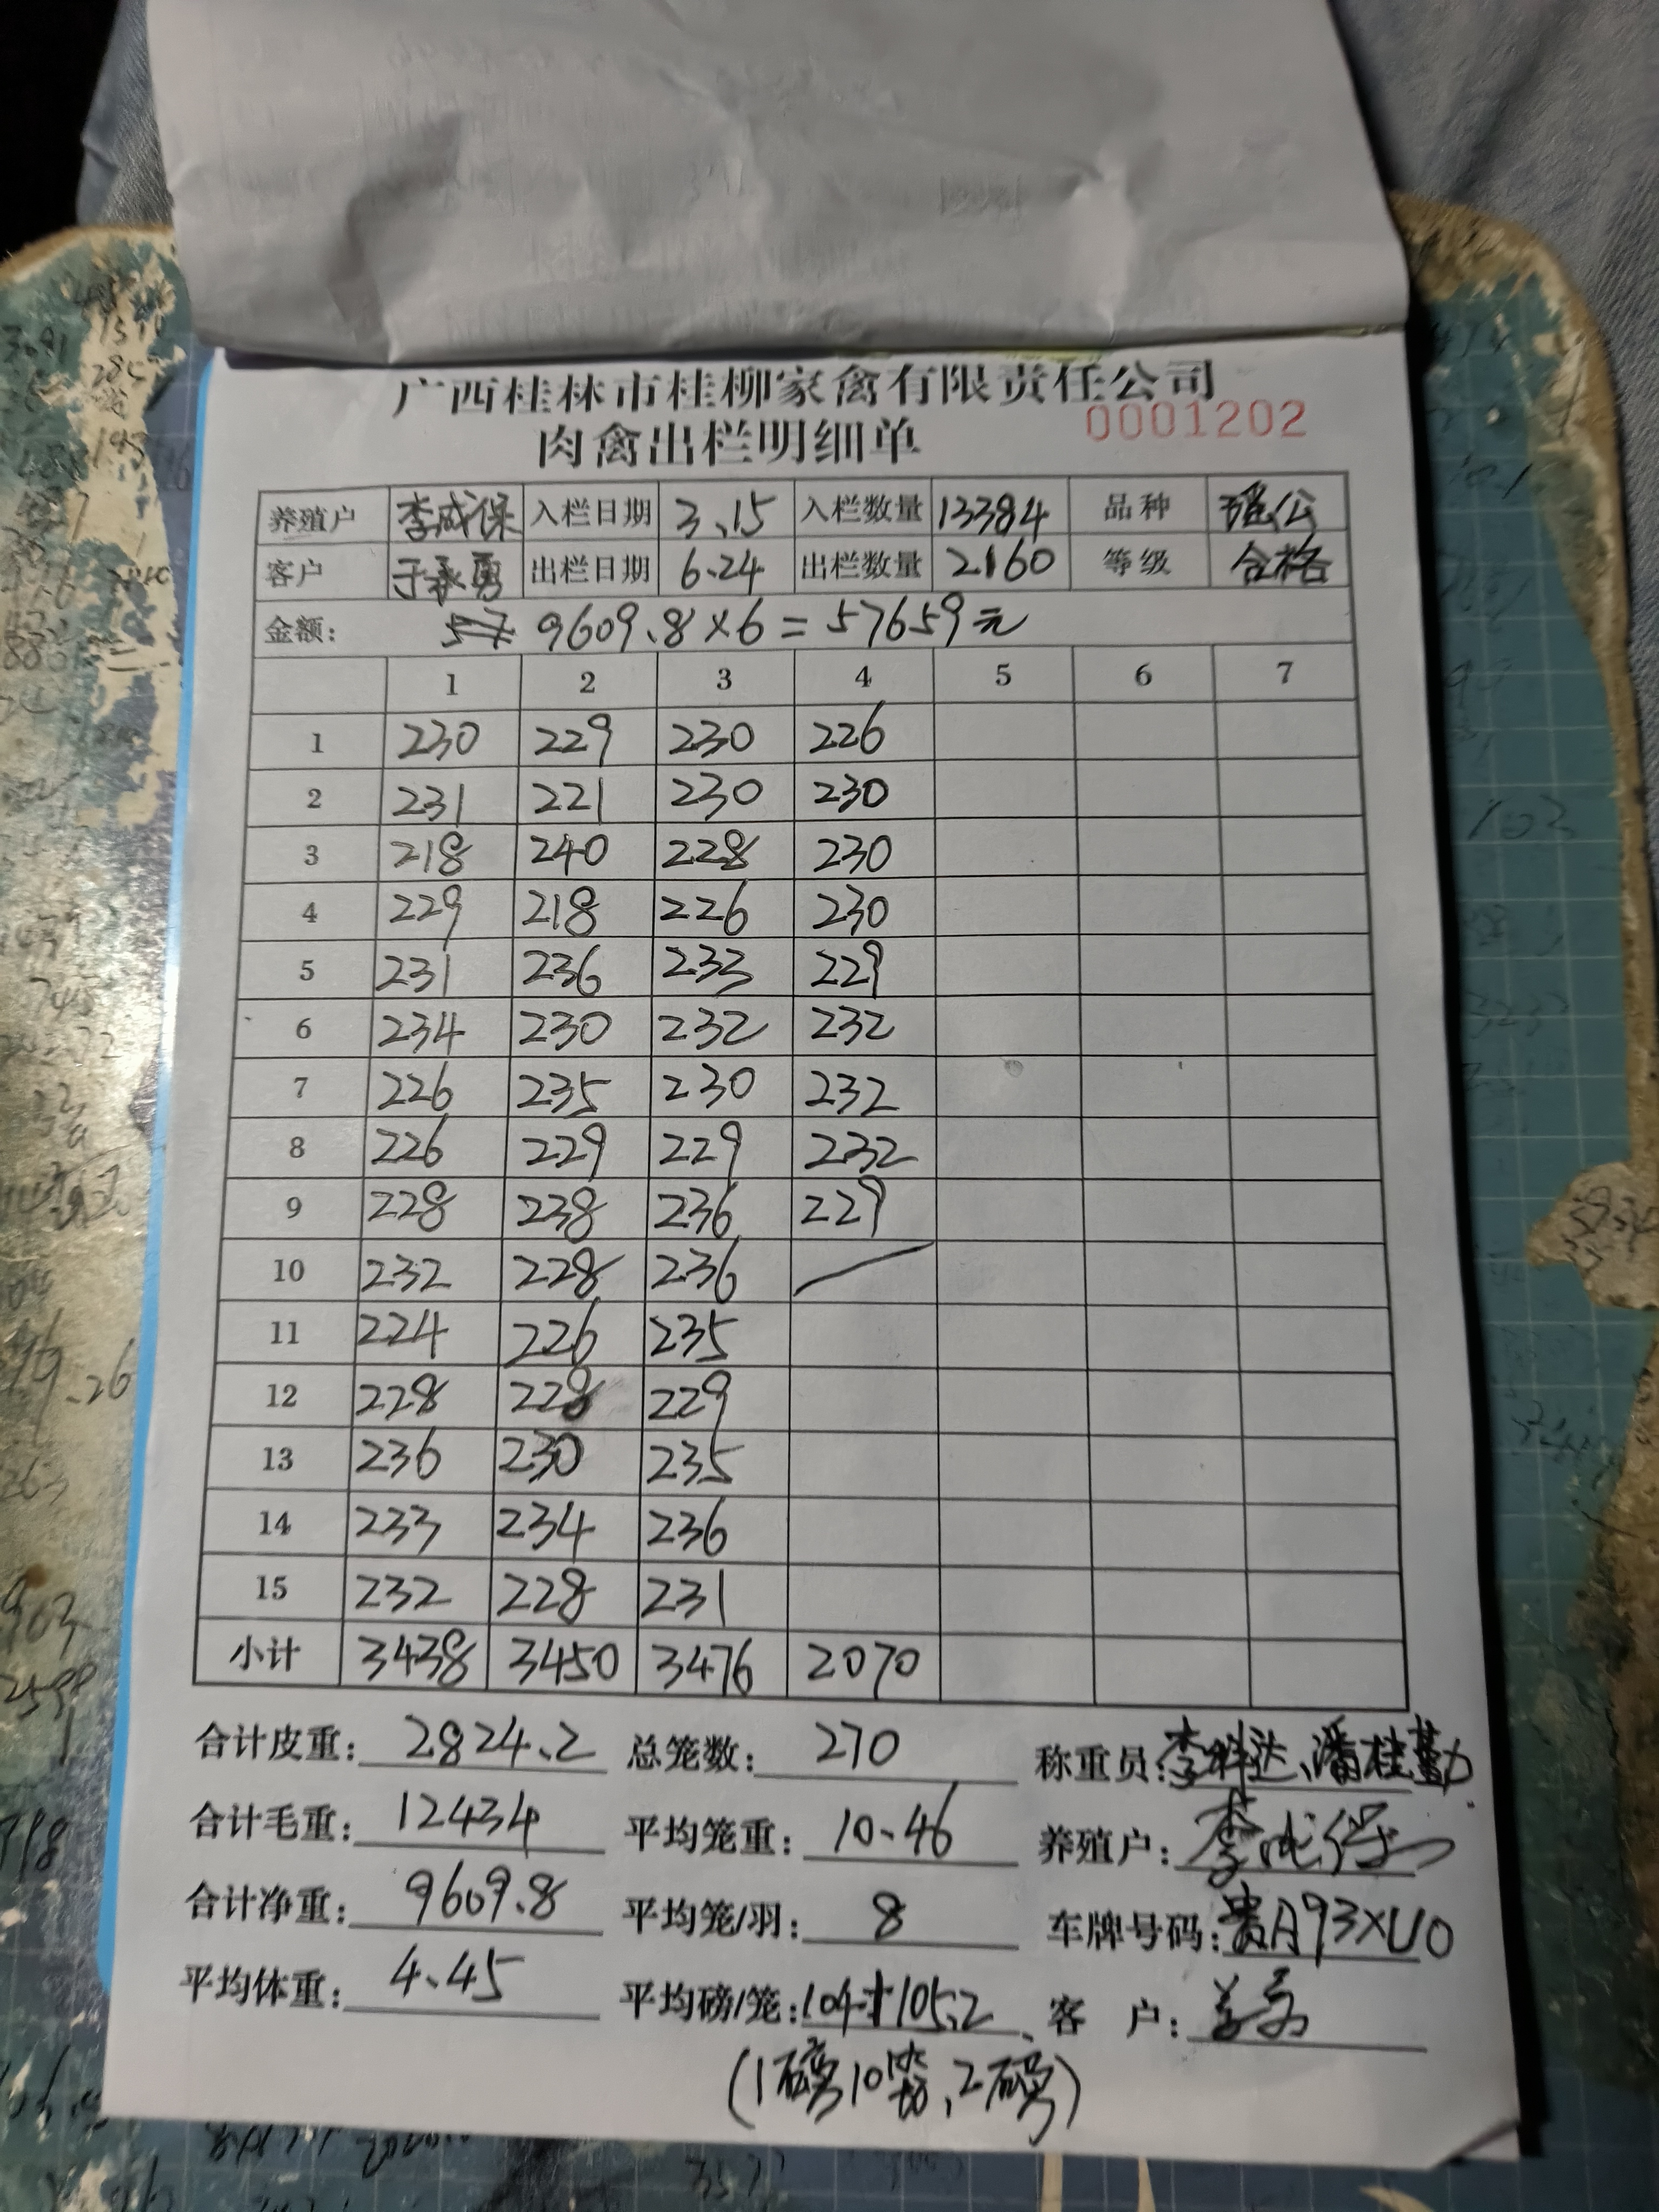 广西桂林市桂柳家禽有限责任公司
肉禽出栏明细单 0001202
养殖户 李成保 入栏日期 3.15 入栏数量 13384 品种 瑶公
客户 于承勇 出栏日期 6.24 出栏数量 2160 等级 合格
金额: 9609.8×6=57659元
1 2 3 4 5 6 7
1 230 229 230 226
2 231 221 230 230
3 218 240 228 230
4 229 218 226 230
5 231 236 233 229
6 234 230 232 232
7 226 235 230 232
8 226 229 229 232
9 228 238 236 229
10 232 228 236
11 224 226 235
12 228 228 229
13 236 230 235
14 233 234 236
15 232 228 231
小计 3438 3450 3476 2070
合计皮重: 2824.2 总笼数: 270 称重员: 李科达、潘桂勤
合计毛重: 12434 平均笼重: 10.46 养殖户: 李成保
合计净重: 9609.8 平均笼/羽: 8 车牌号码: 贵A93XU0
平均体重: 4.45 平均磅/笼: 104+105.2 客 户:
(1磅10笼,2磅)